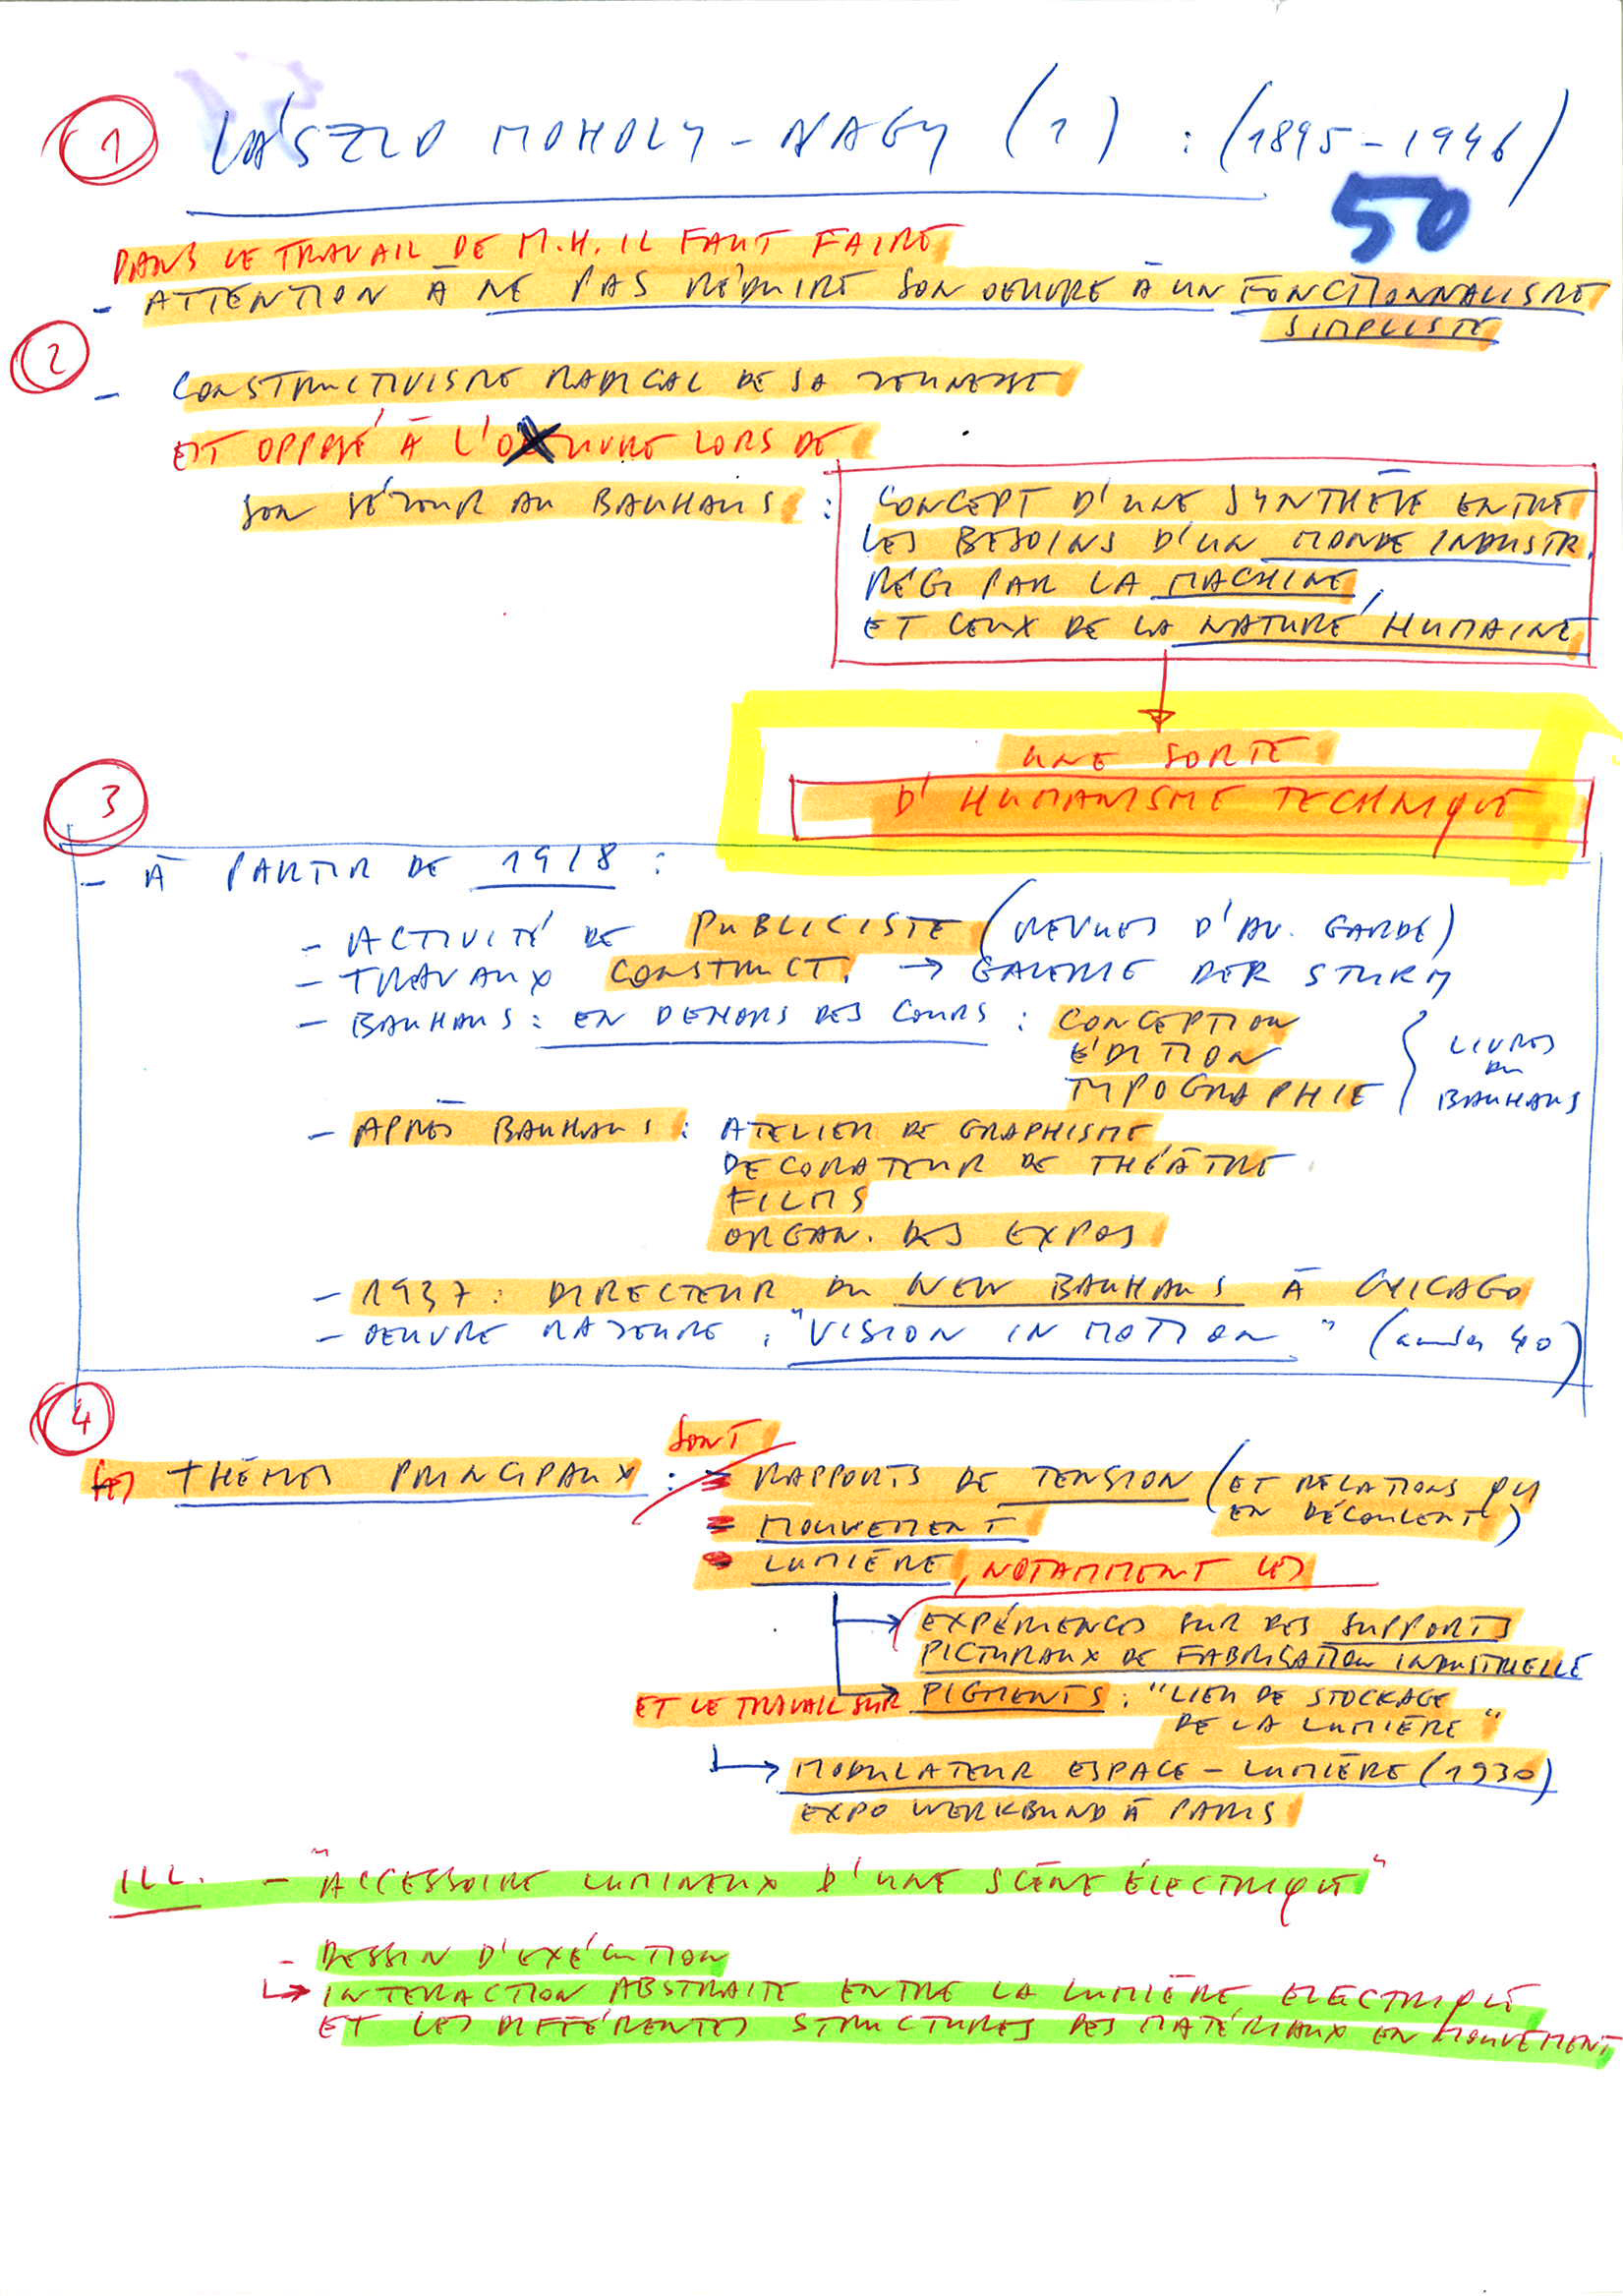 1 LÁSZLO MOHOLY-NAGY (1) : (1895-1946)
50
DANS LE TRAVAIL DE M.H. IL FAUT FAIRE
- ATTENTION À NE PAS RÉDUIRE SON OEUVRE À UN FONCTIONNALISME
SIMPLISTE
2
- CONSTRUCTIVISME RADICAL DE SA JEUNESSE
EST OPPOSÉ À L'OEUVRE LORS DE
SON SÉJOUR AU BAUHAUS :
CONCEPT D'UNE SYNTHÈSE ENTRE
LES BESOINS D'UN MONDE INDUSTR.
RÉGI PAR LA MACHINE,
ET CEUX DE LA NATURE HUMAINE
UNE SORTE
D'HUMANISME TECHNIQUE
3
- À PARTIR DE 1918 :
- ACTIVITÉ DE PUBLICISTE (REVUES D'AV. GARDE)
- TRAVAUX CONSTRUCT. → GALERIE DER STURM
- BAUHAUS : EN DEHORS DES COURS : CONCEPTION
ÉDITION
TYPOGRAPHIE
LIVRES
DU
BAUHAUS
- APRÈS BAUHAUS : ATELIER DE GRAPHISME
DECORATEUR DE THÉÂTRE
FILMS
ORGAN. DES EXPOS
- 1937 : DIRECTEUR DU NEW BAUHAUS À CHICAGO
- OEUVRE MAJEURE : "VISION IN MOTION" (années 40)
4
SONT
LES THÈMES PRINCIPAUX : - RAPPORTS DE TENSION (ET RELATIONS QUI
EN DÉCOULENT)
- MOUVEMENT
- LUMIÈRE, NOTAMMENT LES
→ EXPÉRIENCES SUR DES SUPPORTS
PICTURAUX DE FABRICATION INDUSTRIELLE
ET LE TRAVAIL SUR → PIGMENTS : "LIEU DE STOCKAGE
DE LA LUMIÈRE"
→ MODULATEUR ESPACE-LUMIÈRE (1930)
EXPO WERKBUND À PARIS
ILL. - "ACCESSOIRE LUMINEUX D'UNE SCÈNE ÉLECTRIQUE"
- DESSIN D'EXÉCUTION
→ INTERACTION ABSTRAITE ENTRE LA LUMIÈRE ELECTRIQUE
ET LES DIFFÉRENTES STRUCTURES DES MATÉRIAUX EN MOUVEMENT